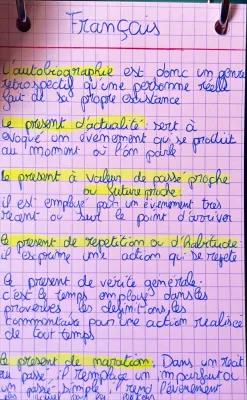 Français
L'autobiographie est donc un genre
retrospectif qu'une personne réelle
fait de sa propre existance
Le présent d'actualité: sert à
évoqué un évènement qui se produit
au moment où l'on parle
le présent à valeur de passé proche
ou future proche:
il est employé pour un évènement très
récent ou sur le point d'arriver
le présent de répétition ou d'habitude:
il exprime une action qui se répète
le présent de vérité générale:
c'est le temps employé dans les
proverbes les définitions, les
commentaire pour une action réalisée
de tout temps
le présent de narration: Dans un récit
au passé il remplace un imparfait ou
un passé simple il rend l'évènement